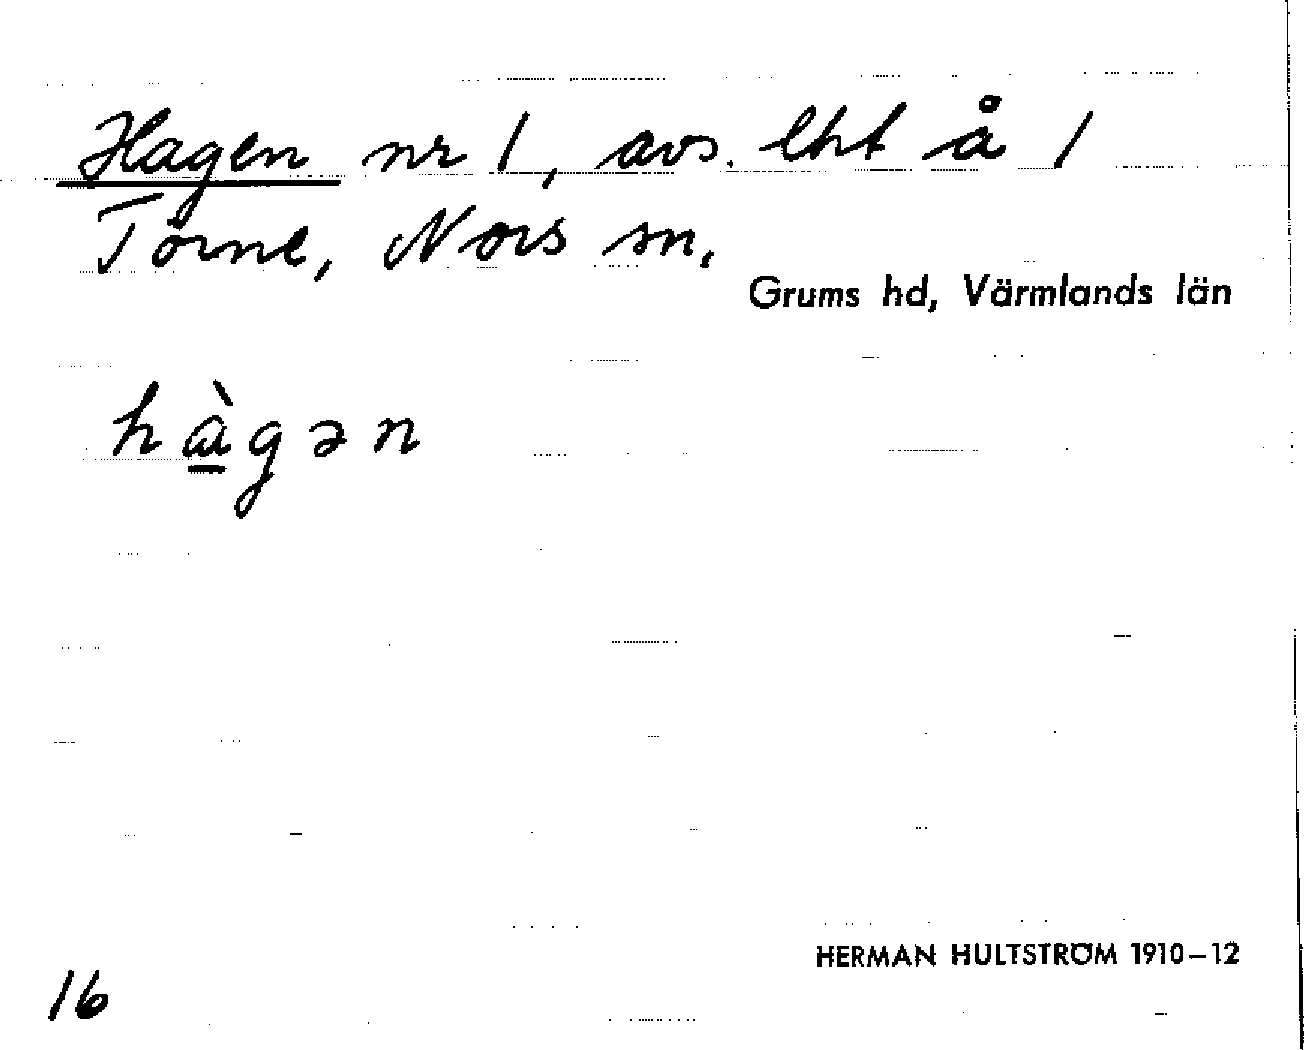 Hagen nr 1, avs. lht å 1
Törne, Nors sn,
Grums hd, Värmlands län
hàgən
HERMAN HULTSTRÖM 1910–12
16